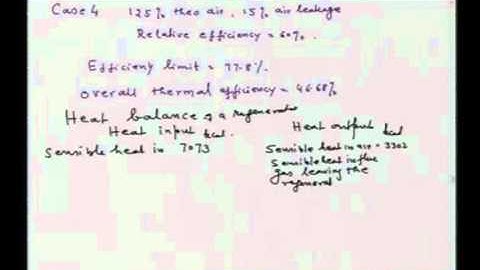 Case 4 125% theo air, 15% air leakage
Relative efficiency = 60%.
Efficieny limit = 77.8%.
Overall thermal efficiency = 46.68%
Heat balance of a regenerator
Heat input kcal.
Heat output kcal
Sensible heat in 7073
Sensible heat in air = 3302
Sensible heat in flue
gas leaving the
regenerat